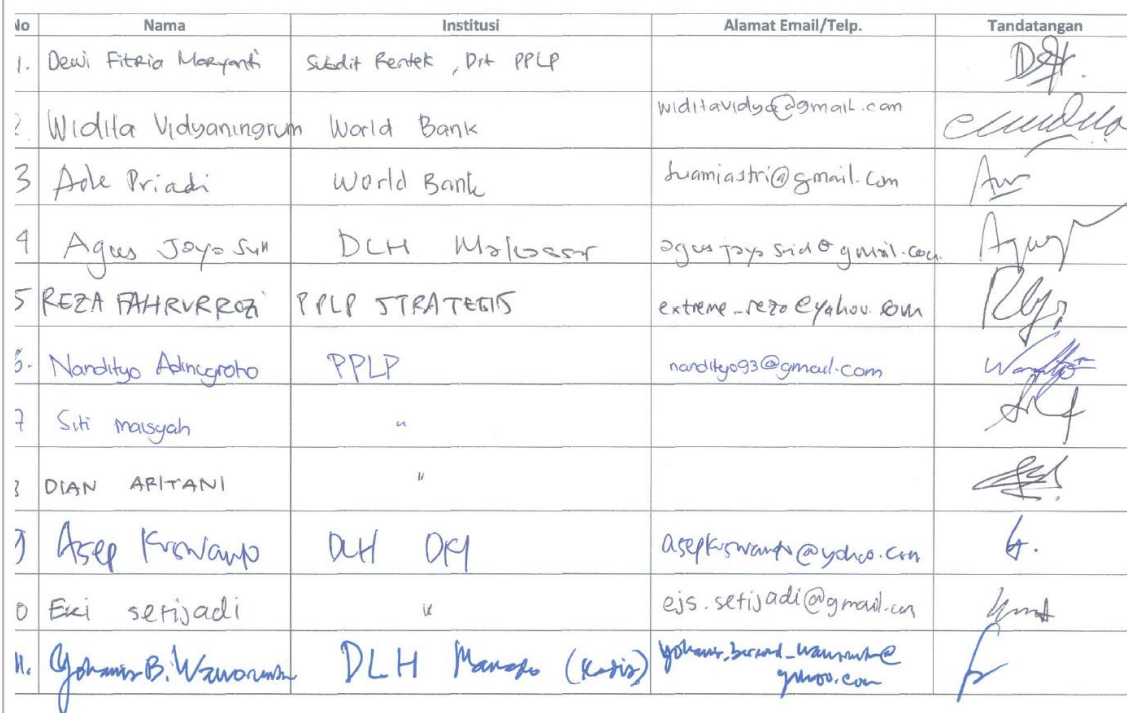 No Nama Institusi Alamat Email/Telp. Tandatangan
1. Dewi Fitria Maryanti Subdit Rentek, Dit PPLP
2. Widita Vidyaningrum World Bank widitavidya@gmail.com
3 Ade Priadi World Bank suamiastri@gmail.com
4 Agus Jaya Sun DLH Makassar agus jaya srid@gmail.com
5 REZA FAHRURROZI PPLP STRATEGIS extreme_reza@yahoo.com
6. Nandityo Adinugroho PPLP nandityo93@gmail.com
7 Siti maisyah "
8 DIAN ARITANI "
9 Asep Kuswanto DLH DKI asepkuswanto@yahoo.com
10 Eki setijadi " ejs.setijadi@gmail.com
11. Yohanis B. Waworuntu DLH Manado (Kadis)
yahoo.com